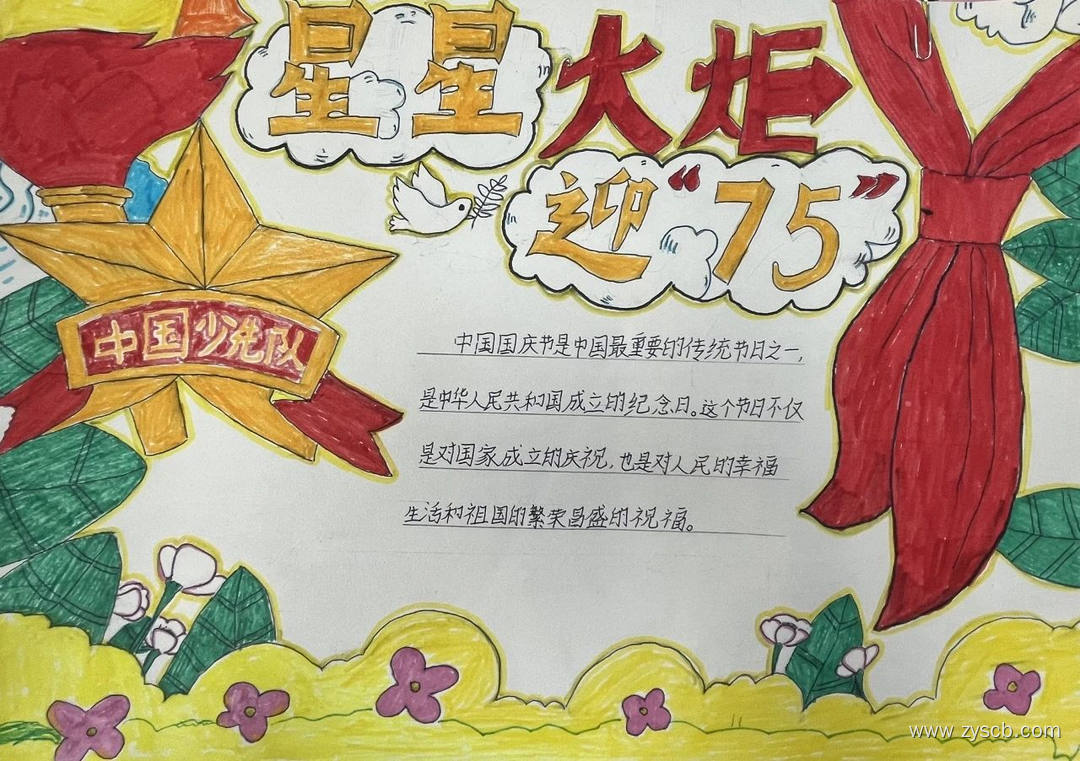 星星火炬
迎“75”
中国少先队
中国国庆节是中国最重要的传统节日之一,
是中华人民共和国成立的纪念日。这个节日不仅
是对国家成立的庆祝,也是对人民的幸福
生活和祖国的繁荣昌盛的祝福。
www.zyscb.com